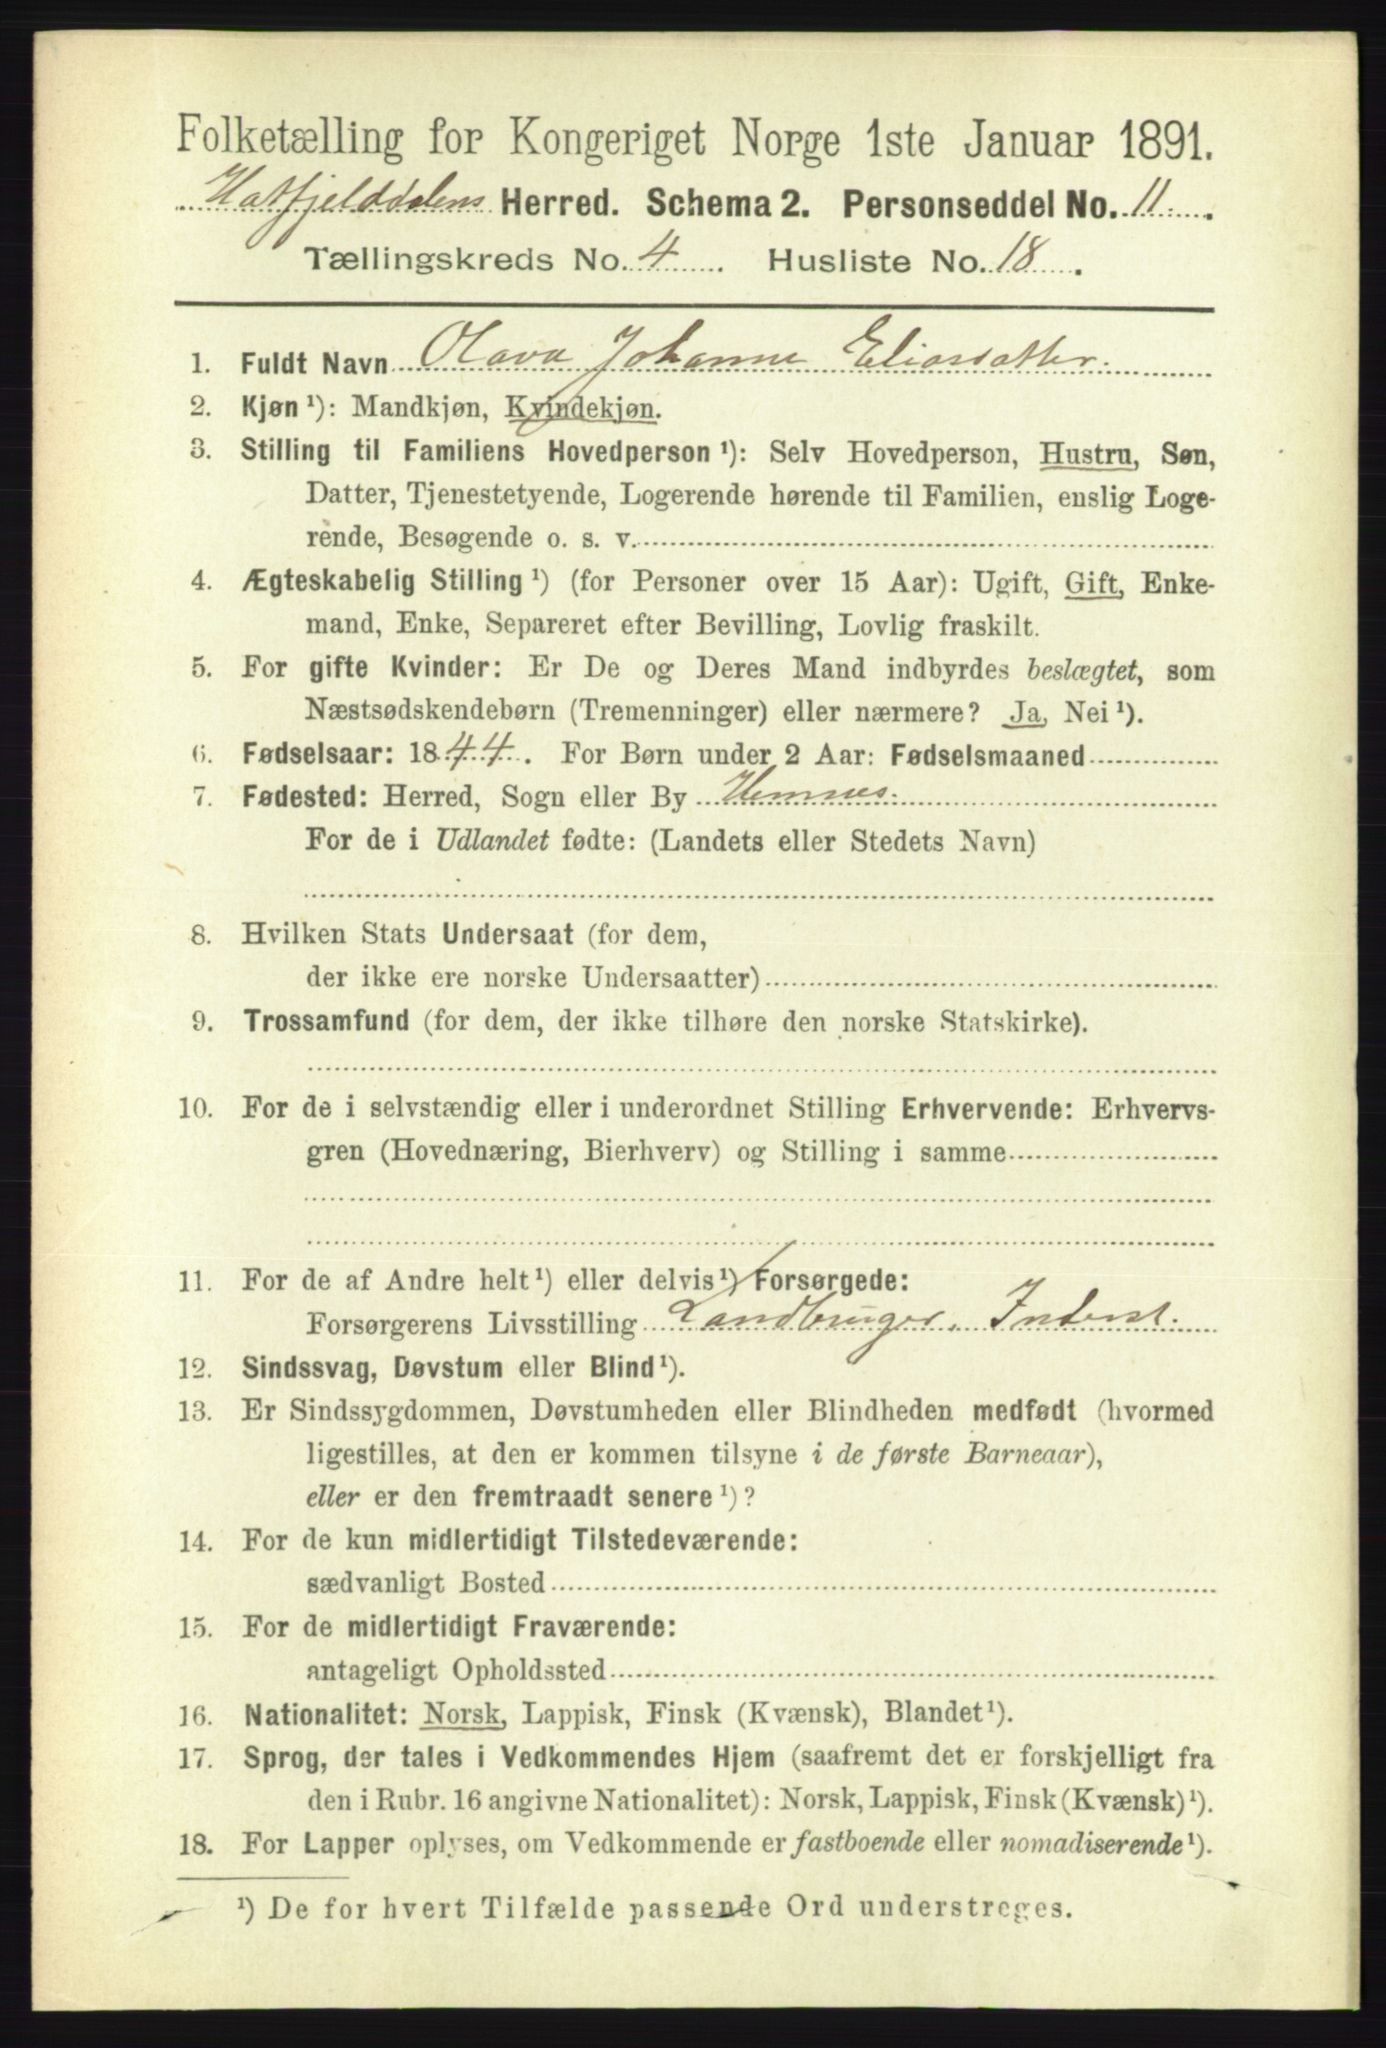 Folketælling for Kongeriget Norge 1ste Januar 1891.
Hatfjelddalens Herred. Schema 2. Personseddel No. 11
Tællingskreds No. 4. Husliste No. 18.
1. Fuldt Navn Olava Johanne Eliasdatter.
2. Kjøn ¹): Mandkjøn, Kvindekjøn.
3. Stilling til Familiens Hovedperson ¹): Selv Hovedperson, Hustru, Søn,
Datter, Tjenestetyende, Logerende hørende til Familien, enslig Loge-
rende, Besøgende o. s. v.
4. Ægteskabelig Stilling ¹) (for Personer over 15 Aar): Ugift, Gift, Enke-
mand, Enke, Separeret efter Bevilling, Lovlig fraskilt.
5. For gifte Kvinder: Er De og Deres Mand indbyrdes beslægtet, som
Næstsødskendebørn (Tremenninger) eller nærmere? Ja, Nei ¹).
6. Fødselsaar: 1844. For Børn under 2 Aar: Fødselsmaaned
7. Fødested: Herred, Sogn eller By Hemnes.
For de i Udlandet fødte: (Landets eller Stedets Navn)
8. Hvilken Stats Undersaat (for dem,
der ikke ere norske Undersaatter)
9. Trossamfund (for dem, der ikke tilhøre den norske Statskirke).
10. For de i selvstændig eller i underordnet Stilling Erhvervende: Erhvervs-
gren (Hovednæring, Bierhverv) og Stilling i samme
11. For de af Andre helt ¹) eller delvis ¹) Forsørgede:
Forsørgerens Livsstilling Landbruger, Inderst.
12. Sindssvag, Døvstum eller Blind ¹).
13. Er Sindssygdommen, Døvstumheden eller Blindheden medfødt (hvormed
ligestilles, at den er kommen tilsyne i de første Barneaar),
eller er den fremtraadt senere ¹)?
14. For de kun midlertidigt Tilstedeværende:
sædvanligt Bosted
15. For de midlertidigt Fraværende:
antageligt Opholdssted
16. Nationalitet: Norsk, Lappisk, Finsk (Kvænsk), Blandet ¹).
17. Sprog, der tales i Vedkommendes Hjem (saafremt det er forskjelligt fra
den i Rubr. 16 angivne Nationalitet): Norsk, Lappisk, Finsk (Kvænsk) ¹).
18. For Lapper oplyses, om Vedkommende er fastboende eller nomadiserende ¹).
¹) De for hvert Tilfælde passende Ord understreges.